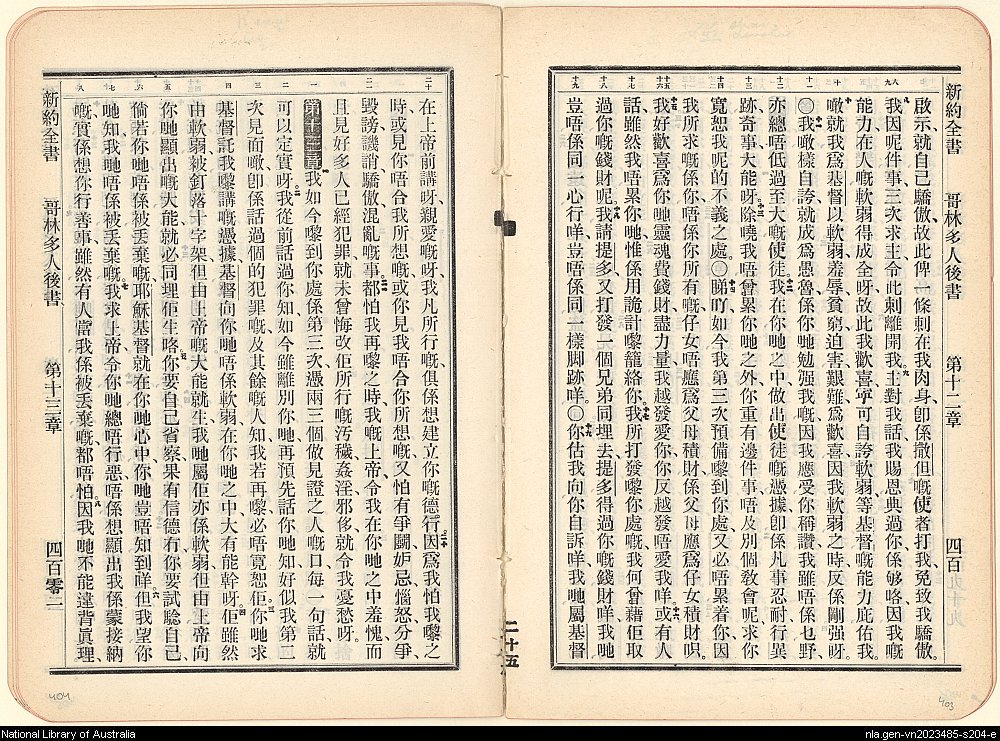 新約全書　哥林多人後書　第十二章　四百
啟示、就自己驕傲、故此俾一條刺在我肉身、即係撒但嘅使者打我、免致我驕傲。
我因呢件事、三次求主、令此刺離開我。主對我話、我賜恩典過你係够咯、因我嘅
能力、在人嘅軟弱得成全呀、故此我歡喜、寧可自誇軟弱、等基督嘅能力庇佑我、
噉就我爲基督、以軟弱、羞辱、貧窮、迫害、艱難爲歡喜、因我軟弱之時、反係剛強呀。
〇我噉樣自誇、就成爲愚魯、係你哋勉强我嘅、因我應受你稱讚、我雖唔係乜野、
亦總唔低過至大嘅使徒。我在你哋之中、做出使徒嘅憑據、即係凡事忍耐、行異
跡、奇事、大能呀。除嘵我唔曾累你哋之外、你重有邊件事、唔及別個教會呢、求你
寬恕我呢的不義之處。〇睇吖、如今我第三次預備嚟到你處、又必唔累着你、因
我所求嘅係你、唔係你所有嘅、仔女唔應爲父母積財、係父母應爲仔女積財呮。
我好歡喜爲你哋靈魂、費錢財、盡力量、我越發愛你、你反越發唔愛我咩。或有人
話、雖然我唔累你哋、惟係用詭計嚟籠絡你。我所打發嚟你處嘅、我何曾藉佢取
過你嘅錢財呢。我請提多、又打發一個兄弟同埋去、提多得過你嘅錢財咩、我哋
豈唔係同一心行咩、豈唔係同一樣脚跡咩。〇你估我向你自訴咩、我哋屬基督
二十五
403
在上帝前講呀、親愛嘅呀、我凡所行嘅、俱係想建立你嘅德行。因爲我怕我嚟之
時、或見你唔合我所想嘅、或你見我唔合你所想嘅、又怕有爭鬬、妒忌、惱怒、分爭、
毀謗、譏誚、驕傲、混亂嘅事。都怕我再嚟之時、我嘅上帝令我在你哋之中羞愧、而
且見好多人已經犯罪、就未曾悔改佢所行嘅汚穢、姦淫、邪侈、就令我憂愁呀。
第十三章　我如今嚟到你處係第三次、憑兩三個做見證之人嘅口、每一句話、就
可以定實呀。我從前話過你知、如今雖離別你哋、再預先話你哋知、好似我第二
次見面噉、即係話過個的犯罪嘅、及其餘嘅人知、我若再嚟、必唔寬恕佢。你哋求
基督託我嚟講嘅憑據、基督向你哋唔係軟弱、在你哋之中大有能幹呀。佢雖然
由軟弱被釘落十字架、但由上帝嘅大能就生、我哋屬佢亦係軟弱、但由上帝向
你哋顯出嘅大能、就必同埋佢生咯。你要自己省察、果有信德冇、你要試騐自己、
倘若你哋唔係被丟棄嘅、耶穌基督就在你哋心中、你哋豈唔知到咩。但我望你
哋知我哋唔係被丟棄嘅。我求上帝令你哋總唔行惡、唔係想顯出我係蒙接納
嘅、實係想你行善事、雖然有人當我係被丟棄嘅、都唔怕。因我哋不能違背眞理、
新約全書　哥林多人後書　第十三章　四百零二
404
National Library of Australia
nla.gen-vn2023485-s204-e